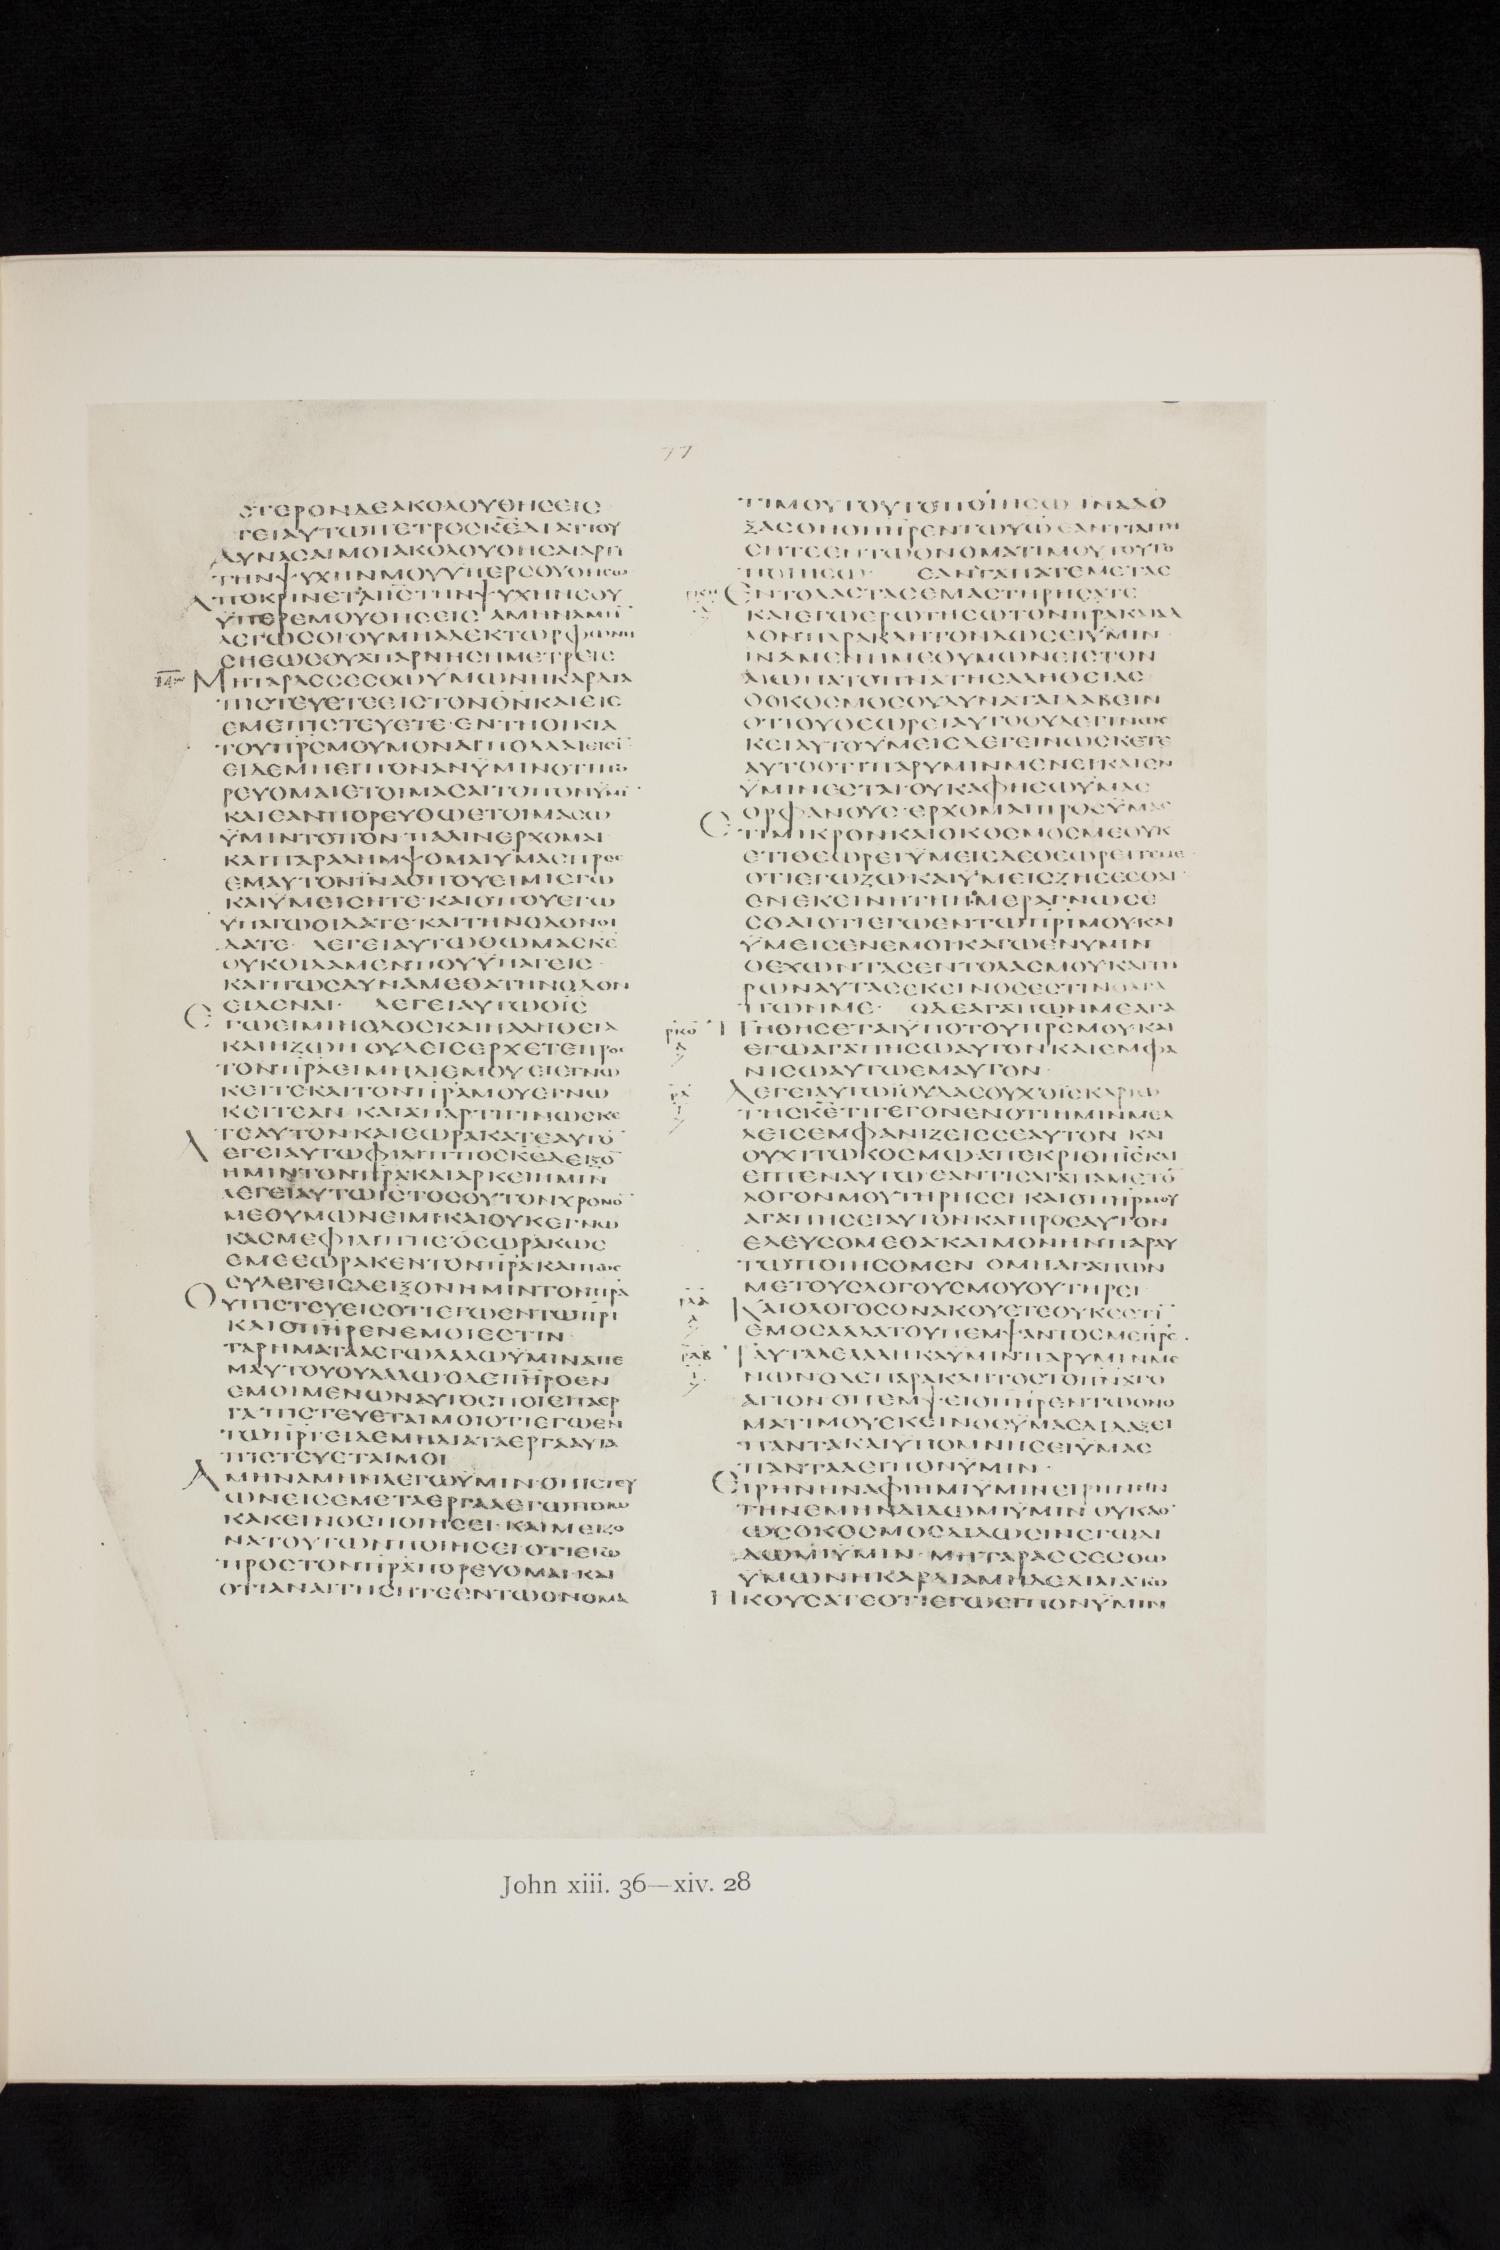 77
ϹΤΕΡΟΝΔΕΑΚΟΛΟΥΘΗϹΕΙϹ
ΓΕΙΑΥΤΩΠΕΤΡΟϹΚ̅Ε̅ΔΙΑΤΙΟΥ
ΔΥΝΑϹΑΙΜΟΙΑΚΟΛΟΥΘΗϹΑΙΑΡΤΙ
ΤΗΝΨΥΧΗΝΜΟΥΥΠΕΡϹΟΥΘΗϹΩ
ΑΠΟΚΡΙΝΕΤΑΙΙ̅Ϲ̅ΤΗΝΨΥΧΗΝϹΟΥ
ΫΠΕΡΕΜΟΥΘΗϹΕΙϹ ΑΜΗΝΑΜΗ̅
ΛΕΓΩϹΟΙΟΥΜΗΑΛΕΚΤΩΡΦΩΝΗ
ϹΗΕΩϹΟΥΑΠΑΡΝΗϹΗΜΕΤΡΕΙϹ
14
ΜΗΤΑΡΑϹϹΕϹΘΩΫΜΩΝΗΚΑΡΔΙΑ
ΠΙϹΤΕΥΕΤΕΕΙϹΤΟΝΘ̅Ν̅ΚΑΙΕΙϹ
ΕΜΕΠΙϹΤΕΥΕΤΕ·ΕΝΤΗΟΙΚΙΑ
ΤΟΥΠ̅Ρ̅Ϲ̅ΜΟΥΜΟΝΑΙΠΟΛΛΑΙΕΙϹΙ̅
ΕΙΔΕΜΗΕΙΠΟΝΑΝΫΜΙΝΟΤΙΠΟ
ΡΕΥΟΜΑΙΕΤΟΙΜΑϹΑΙΤΟΠΟΝΫΜΙ̅
ΚΑΙΕΑΝΠΟΡΕΥΘΩΕΤΟΙΜΑϹΩ
ΫΜΙΝΤΟΠΟΝ·ΠΑΛΙΝΕΡΧΟΜΑΙ
ΚΑΙΠΑΡΑΛΗΜΨΟΜΑΙΫΜΑϹΠΡΟϹ
ΕΜΑΥΤΟΝΪΝΑΟΠΟΥΕΙΜΙΕΓΩ
ΚΑΙΫΜΕΙϹΗΤΕ·ΚΑΙΟΠΟΥΕΓΩ
ΫΠΑΓΩΟΙΔΑΤΕ·ΚΑΙΤΗΝΟΔΟΝΟΙ
ΔΑΤΕ· ΛΕΓΕΙΑΥΤΩΘΩΜΑϹΚ̅Ε̅
ΟΥΚΟΙΔΑΜΕΝΠΟΥΫΠΑΓΕΙϹ·
ΚΑΙΠΩϹΔΥΝΑΜΕΘΑΤΗΝΟΔΟΝ
ΕΙΔΕΝΑΙ· ΛΕΓΕΙΑΥΤΩΟΙ̅Ϲ̅
ΕΓΩΕΙΜΙΗΟΔΟϹΚΑΙΗΑΛΗΘΕΙΑ
ΚΑΙΗΖΩΗ ΟΥΔΕΙϹΕΡΧΕΤΕΠΡΟϹ
ΤΟΝΠ̅Ρ̅Α̅ΕΙΜΗΔΙΕΜΟΥ ΕΙΕΓΝΩ
ΚΕΙΤΕΚΑΙΤΟΝΠ̅Ρ̅Α̅ΜΟΥΕΓΝΩ
ΚΕΙΤΕΑΝ· ΚΑΙΑΠΑΡΤΙΓΙΝΩϹΚΕ
ΤΕΑΥΤΟΝΚΑΙΕΩΡΑΚΑΤΕΑΥΤΟ̅
ΛΕΓΕΙΑΥΤΩΦΙΛΙΠΠΟϹΚ̅Ε̅ΔΕΙΞΟ̅
ΗΜΙΝΤΟΝΠ̅Ρ̅Α̅ΚΑΙΑΡΚΕΙΗΜΙΝ
ΛΕΓΕΙΑΥΤΩΙ̅Ϲ̅ΤΟϹΟΥΤΟΝΧΡΟΝΟ̅
ΜΕΘΥΜΩΝΕΙΜΙΚΑΙΟΥΚΕΓΝΩ
ΚΑϹΜΕΦΙΛΙΠΠΕ·ΟΕΩΡΑΚΩϹ
ΕΜΕΕΩΡΑΚΕΝΤΟΝΠ̅Ρ̅Α̅ΚΑΙΠΩϹ
ϹΥΛΕΓΕΙϹΔΕΙΞΟΝΗΜΙΝΤΟΝΠ̅Ρ̅Α̅
ΟΥΠΙϹΤΕΥΕΙϹΟΤΙΕΓΩΕΝΤΩΠ̅Ρ̅Ι̅
ΚΑΙΟΠ̅Η̅Ρ̅ΕΝΕΜΟΙΕϹΤΙΝ
ΤΑΡΗΜΑΤΑΑΕΓΩΛΑΛΩΫΜΙΝΑΠΕ
ΜΑΥΤΟΥΟΥΛΑΛΩ·ΟΔΕΠ̅Η̅Ρ̅ΟΕΝ
ΕΜΟΙΜΕΝΩΝΑΥΤΟϹΠΟΙΕΙΤΑΕΡ
ΓΑ·ΠΙϹΤΕΥΕΤΑΙΜΟΙΟΤΙΕΓΩΕΝ
ΤΩΠ̅Ρ̅Ι̅·ΕΙΔΕΜΗΔΙΑΤΑΕΡΓΑΑΥΤΑ
ΠΙϹΤΕΥΕΤΑΙΜΟΙ
ΑΜΗΝΑΜΗΝΛΕΓΩΫΜΙΝ·ΟΠΙϹΤΕΥ
ΩΝΕΙϹΕΜΕΤΑΕΡΓΑΑΕΓΩΠΟΙΩ
ΚΑΚΕΙΝΟϹΠΟΙΗϹΕΙ·ΚΑΙΜΕΙΖΟ
ΝΑΤΟΥΤΩΝΠΟΙΗϹΕΙ·ΟΤΙΕΓΩ
ΠΡΟϹΤΟΝΠ̅Ρ̅Α̅ΠΟΡΕΥΟΜΑΙ·ΚΑΙ
ΟΤΙΑΝΑΙΤΗϹΗΤΕΕΝΤΩΟΝΟΜΑ
ΤΙΜΟΥΤΟΥΤΟΠΟΙΗϹΩ ΙΝΑΔΟ
ΞΑϹΘΗΟΠ̅Η̅Ρ̅ΕΝΤΩΥΩ ΕΑΝΤΙΑΙΤΗ
ϹΗΤΕΕΝΤΩΟΝΟΜΑΤΙΜΟΥΤΟΥΤΟ
ΠΟΙΗϹΩ· ΕΑΝΑΓΑΠΑΤΕΜΕΤΑϹ
ΕΝΤΟΛΑϹΤΑϹΕΜΑϹΤΗΡΗϹΑΤΕ
ΚΑΙΕΓΩΕΡΩΤΗϹΩΤΟΝΠ̅Ρ̅Α̅ΚΑΙΑΛ
ΛΟΝΠΑΡΑΚΛΗΤΟΝΔΩϹΕΙΫΜΙΝ
ΙΝΑΜΕΝΗΜΕΘΥΜΩΝΕΙϹΤΟΝ
ΑΙΩΝΑΤΟΠ̅Ν̅Α̅ΤΗϹΑΛΗΘΕΙΑϹ
ΟΟΚΟϹΜΟϹΟΥΔΥΝΑΤΑΙΛΑΒΕΙΝ
ΟΤΙΟΥΘΕΩΡΕΙΑΥΤΟΟΥΔΕΓΙΝΩϹ
ΚΕΙΑΥΤΟ·ΫΜΕΙϹΔΕΓΕΙΝΩϹΚΕΤΕ
ΑΥΤΟΟΤΙΠΑΡΥΜΙΝΜΕΝΕΙ·ΚΑΙΕΝ
ΫΜΙΝΕϹΤΑΙ·ΟΥΚΑΦΗϹΩΫΜΑϹ
ΟΡΦΑΝΟΥϹ·ΕΡΧΟΜΑΙΠΡΟϹΫΜΑϹ
ΕΤΙΜΙΚΡΟΝΚΑΙΟΚΟϹΜΟϹΜΕΟΥΚ
ΕΤΙΘΕΩΡΕΙ·ΫΜΕΙϹΔΕΘΕΩΡΕΙΤΕΜΕ·
ΟΤΙΕΓΩΖΩ·ΚΑΙΫΜΕΙϹΖΗϹΕϹΘΑΙ·
ΕΝΕΚΕΙΝΗΤΗΗΜΕΡΑΓΝΩϹΕ
ϹΘΑΙΟΤΙΕΓΩΕΝΤΩΠ̅Ρ̅Ι̅ΜΟΥΚΑΙ
ΫΜΕΙϹΕΝΕΜΟΙ·ΚΑΓΩΕΝΥΜΙΝ
ΟΕΧΩΝΤΑϹΕΝΤΟΛΑϹΜΟΥΚΑΙΤΗ
ΡΩΝΑΥΤΑϹΕΚΕΙΝΟϹΕϹΤΙΝΟΑΓΑ
ΠΩΝΜΕ· ΟΔΕΑΓΑΠΩΝΜΕΑΓΑ
ΠΗΘΗϹΕΤΑΙΫΠΟΤΟΥΠ̅Ρ̅Ϲ̅ΜΟΥ·ΚΑΙ
ΕΓΩΑΓΑΠΗϹΩΑΥΤΟΝΚΑΙΕΜΦΑ
ΝΙϹΩΑΥΤΩΕΜΑΥΤΟΝ·
ΛΕΓΕΙΑΥΤΩΪΟΥΔΑϹΟΥΧΟΙϹΚΑΡΙΩ
ΤΗϹΚ̅Ε̅ΤΙΓΕΓΟΝΕΝΟΤΙΗΜΙΝΜΕΛ
ΛΕΙϹΕΜΦΑΝΙΖΕΙΝϹΕΑΥΤΟΝ ΚΑΙ
ΟΥΧΙΤΩΚΟϹΜΩΑΠΕΚΡΙΘΗΙ̅Ϲ̅ΚΑΙ
ΕΙΠΕΝΑΥΤΩ·ΕΑΝΤΙϹΑΓΑΠΑΜΕΤΟ̅
ΛΟΓΟΝΜΟΥΤΗΡΗϹΕΙ·ΚΑΙΟΠ̅Η̅Ρ̅ΜΟΥ
ΑΓΑΠΗϹΕΙΑΥΤΟΝΚΑΙΠΡΟϹΑΥΤΟΝ
ΕΛΕΥϹΟΜΕΘΑ·ΚΑΙΜΟΝΗΝΠΑΡΑΥ
ΤΩΠΟΙΗϹΟΜΕΝ ΟΜΗΑΓΑΠΩΝ
ΜΕΤΟΥϹΛΟΓΟΥϹΜΟΥΟΥΤΗΡΕΙ
ΚΑΙΟΛΟΓΟϹΟΝΑΚΟΥΕΤΕΟΥΚΕϹΤΙ̅
ΕΜΟϹΑΛΛΑΤΟΥΠΕΜΨΑΝΤΟϹΜΕΠ̅Ρ̅Ϲ̅·
ΤΑΥΤΑΛΕΛΑΛΗΚΑΫΜΙΝΠΑΡΥΜΙΝΜΕ
ΝΩΝΟΔΕΠΑΡΑΚΛΗΤΟϹΤΟΠ̅Ν̅Α̅ΤΟ
ΑΓΙΟΝ·ΟΠΕΜΨΕΙΟΠ̅Η̅Ρ̅ΕΝΤΩΟΝΟ
ΜΑΤΙΜΟΥΕΚΕΙΝΟϹΫΜΑϹΔΙΔΑΞΕΙ
ΠΑΝΤΑΚΑΙΥΠΟΜΝΗϹΕΙΫΜΑϹ
ΠΑΝΤΑΑΕΙΠΟΝΫΜΙΝ·
ΕΙΡΗΝΗΝΑΦΙΗΜΙΫΜΙΝΕΙΡΗΝΗΝ
ΤΗΝΕΜΗΝΔΙΔΩΜΙΫΜΙΝ ΟΥΚΑΘ
ΩϹΟΚΟϹΜΟϹΔΙΔΩϹΕΙΝΕΓΩΔΙ
ΔΩΜΙΫΜΙΝ·ΜΗΤΑΡΑϹϹΕϹΘΩ
ΫΜΩΝΗΚΑΡΔΙΑΜΗΔΕΔΙΛΙΑΤΩ
ΗΚΟΥϹΑΤΕΟΤΙΕΓΩΕΙΠΟΝΫΜΙΝ
John xiii. 36—xiv. 28